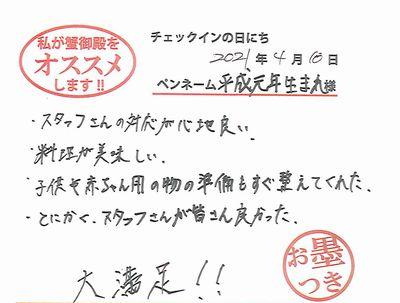 私が蟹御殿を
オススメ
します!!
チェックインの日にち
2021年4月10日
ペンネーム 平成元年生まれ様
・スタッフさんの対応が心地良い。
・料理が美味しい。
・子供や赤ちゃん用の物の準備もすぐ整えてくれた。
・とにかく、スタッフさんが皆さん良かった。
大満足!!
お墨つき